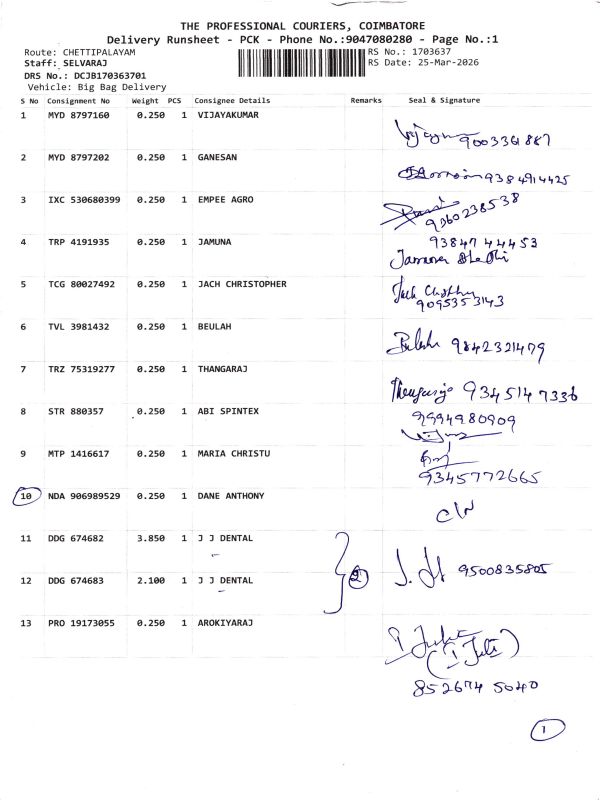 THE PROFESSIONAL COURIERS, COIMBATORE
Delivery Runsheet - PCK - Phone No.:9047080280 - Page No.:1
Route: CHETTIPALAYAM RS No.: 1703637
Staff: SELVARAJ RS Date: 25-Mar-2026
DRS No.: DCJB170363701
Vehicle: Big Bag Delivery
S No Consignment No Weight PCS Consignee Details Remarks Seal & Signature
1 MYD 8797160 0.250 1 VIJAYAKUMAR
9003361887
2 MYD 8797202 0.250 1 GANESAN
9384914425
3 IXC 530680399 0.250 1 EMPEE AGRO
9360238538
4 TRP 4191935 0.250 1 JAMUNA
93847 44453
Jamuna
5 TCG 80027492 0.250 1 JACH CHRISTOPHER
Jach
9095353143
6 TVL 3981432 0.250 1 BEULAH
Beulah 9842321479
7 TRZ 75319277 0.250 1 THANGARAJ
9345147336
8 STR 880357 0.250 1 ABI SPINTEX
9994980909
9 MTP 1416617 0.250 1 MARIA CHRISTU
9345772665
10 NDA 906989529 0.250 1 DANE ANTHONY
11 DDG 674682 3.850 1 J J DENTAL
2 9500835805
12 DDG 674683 2.100 1 J J DENTAL
13 PRO 19173055 0.250 1 AROKIYARAJ
852674 5040
1